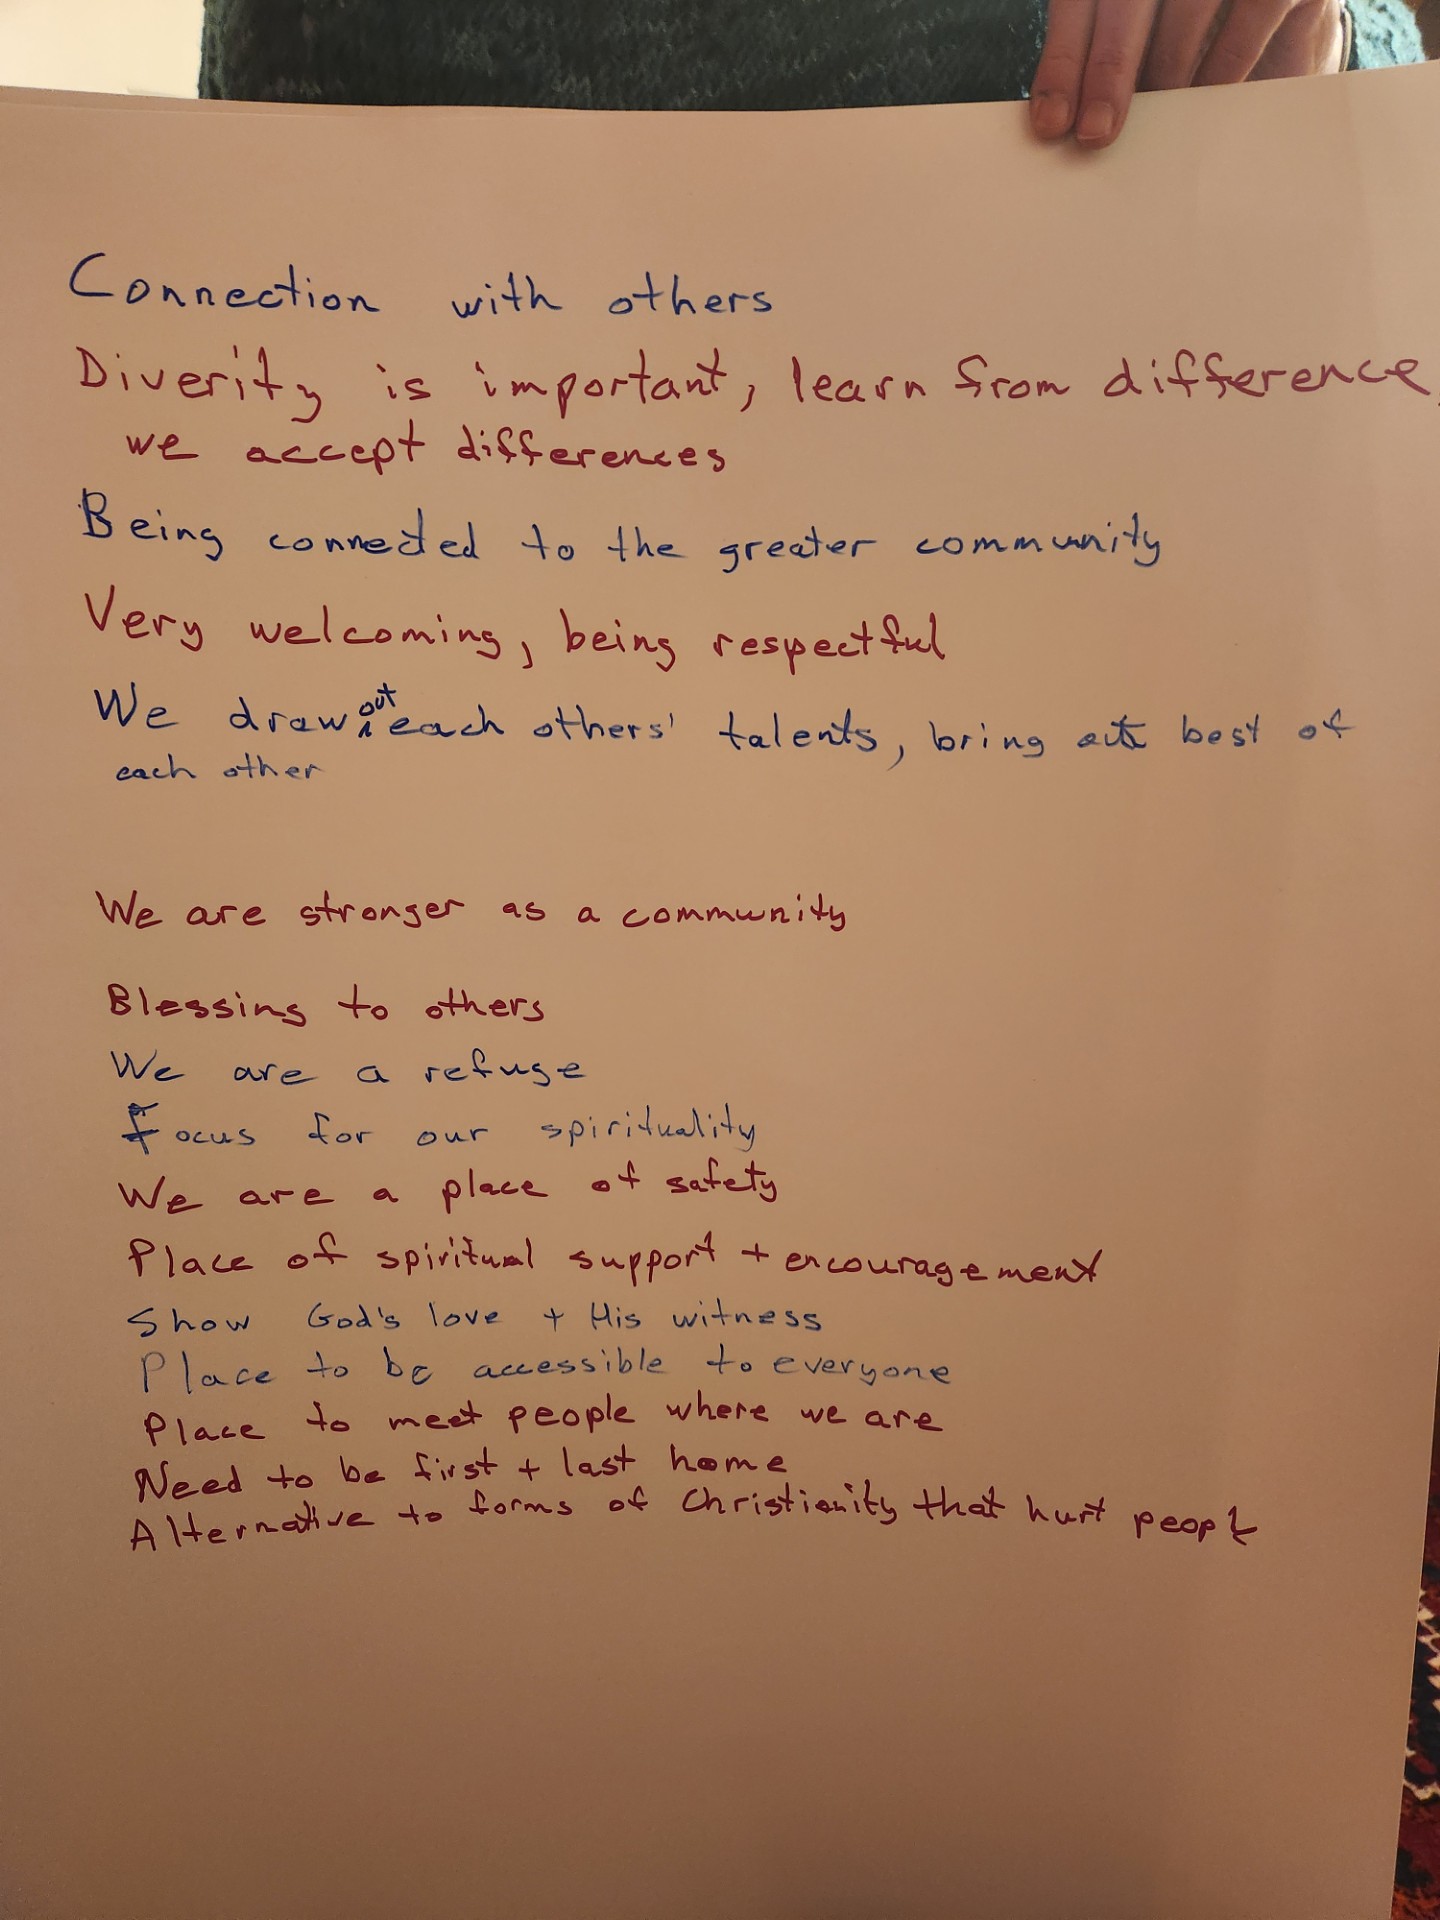 Connection with others
Diverity is important, learn from difference,
we accept differences
Being connected to the greater community
Very welcoming, being respectful
We draw out each others' talents, bring out best of
each other
We are stronger as a community
Blessing to others
We are a refuge
Focus for our spirituality
We are a place of safety
Place of spiritual support + encouragement
Show God's love + His witness
Place to be accessible to everyone
Place to meet people where we are
Need to be first + last home
Alternative to forms of Christianity that hurt people